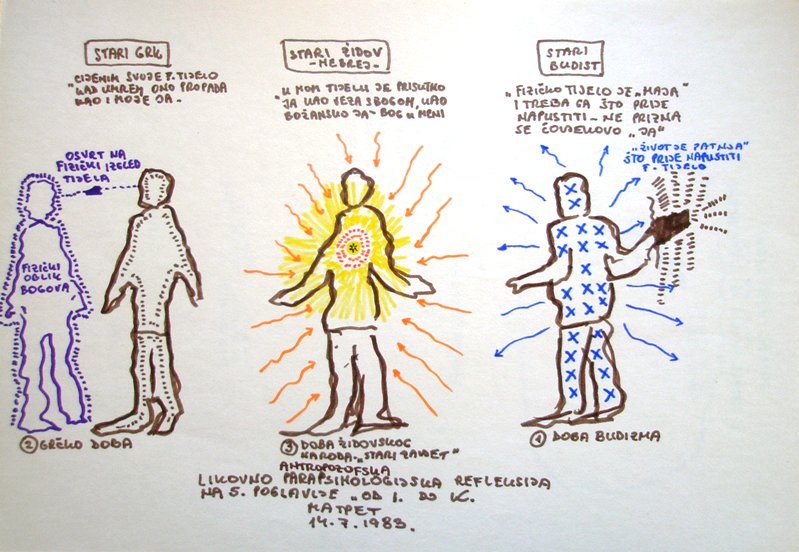 STARI GRK
CIJENIM SVOJE F. TIJELO
"KAD UMREM ONO PROPADA
KAO I MOJE JA.
OSVRT NA
FIZIČKI IZGLED
TIJELA
FIZIČKI
OBLIK
BOGOVA
2 GRČKO DOBA
STARI ŽIDOV
-HEBREJ-
U MOM TIJELU JE PRISUTKO
"JA KAO VEZA S BOGOM, KAO
BOŽANSKO JA - BOG U MENI
3 DOBA ŽIDOVSKOG
NARODA - "STARI ZAVJET"
STARI
BUDIST
"FIZIČKO TIJELO JE "MAJA"
I TREBA GA ŠTO PRIJE
NAPUSTITI - NE PRIZNA
SE ČOVJEKOVO "JA"
"ŽIVOT JE PATNJA"
ŠTO PRIJE NAPUSTITI
F. TIJELO
1 DOBA BUDIZMA
ANTROPOZOFSKA
LIKOVNO PARAPSIHOLOGIJSKA REFLEKSIJA
NA 5. POGLAVLJE "OD I. DO K.
MATPET
14.7.1983.